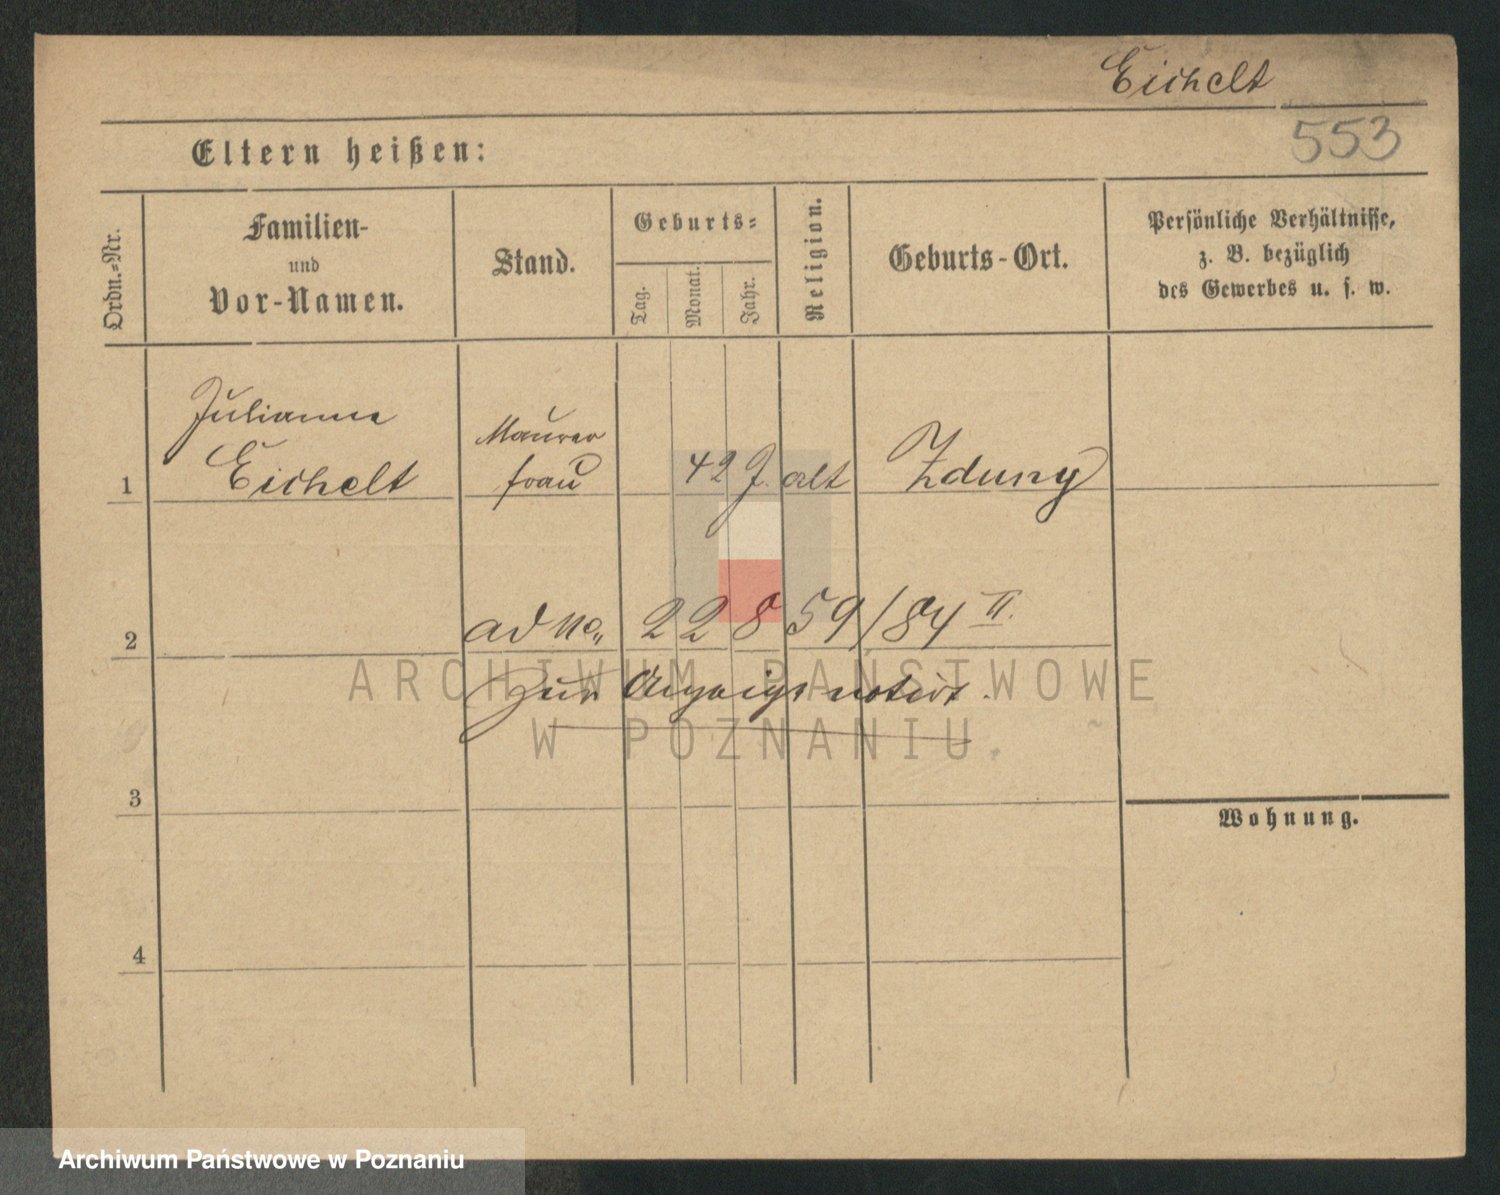 Eichelt
553
Eltern heißen:
Ordn.-Nr.
Familien-
und
Vor-Namen.
Stand.
Geburts-
Tag.
Monat.
Jahr.
Religion.
Geburts-Ort.
Persönliche Verhältnisse,
z. B. bezüglich
des Gewerbes u. s. w.
Julianna
Eichelt
Maurer
frau
1
42 J. alt
Zduny
2
ad No. 22859/84 II.
zur notirt.
ARCHIWUM PAŃSTWOWE
W POZNANIU
3
Wohnung.
4
Archiwum Państwowe w Poznaniu